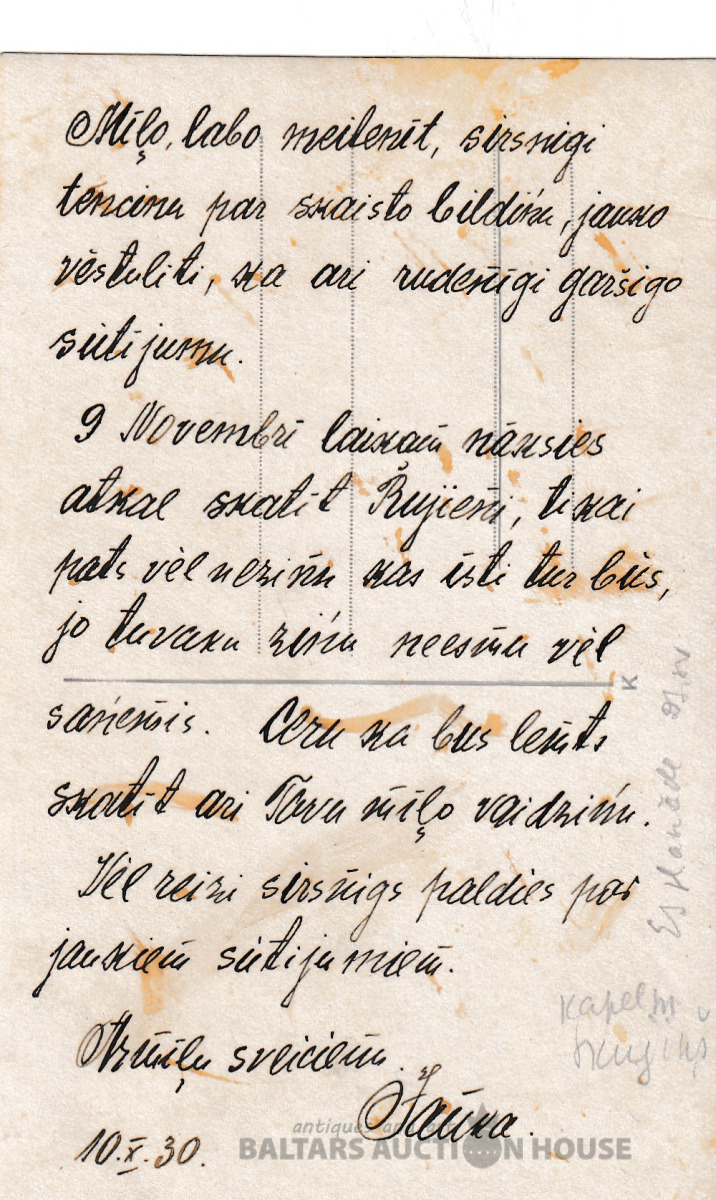 Mīļo, labo meitenīt, sirsnigi
tencinu par skaisto bildiņu, jauko
vēstulīti, kā ari rudenīgi garšigo
sūtijumu.
9 Novembrī laikam nāksies
atkal skatīt Rujieni, tikai
pats vēl nezinu kas īsti tur būs,
jo tuvaku ziņu neesmu vēl
saņemis. Ceru ka bus lemts
skatīt ari Tavu mīļo vaidziņu.
Vēl reizi sirsnīgs paldies par
jaukiem sūtijumiem.
Ar mīļu sveicienu
10.X.30.
K
antiques art lots
BALTARS AUCTION HOUSE